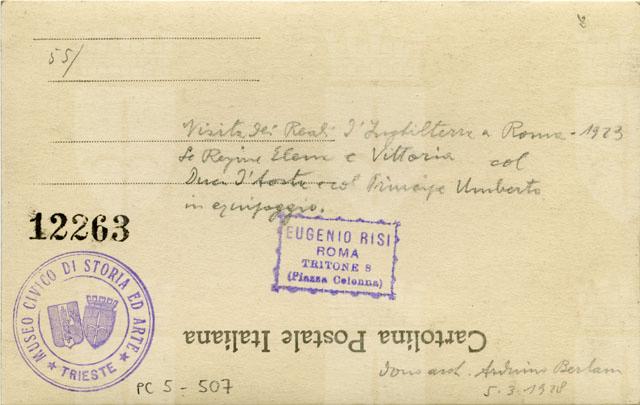 55/
Visita dei Reali d'Inghilterra a Roma - 1923
Le Regine Elena e Vittoria col
Duca d'Aosta e col Principe Umberto
in equipaggio.
12263
EUGENIO RISI
ROMA
TRITONE 8
(Piazza Colonna)
MUSEO CIVICO DI STORIA ED ARTE
★ TRIESTE ★
Cartolina Postale Italiana
dono arch. Arduino Berlam
5.3.1928
PC 5 - 507